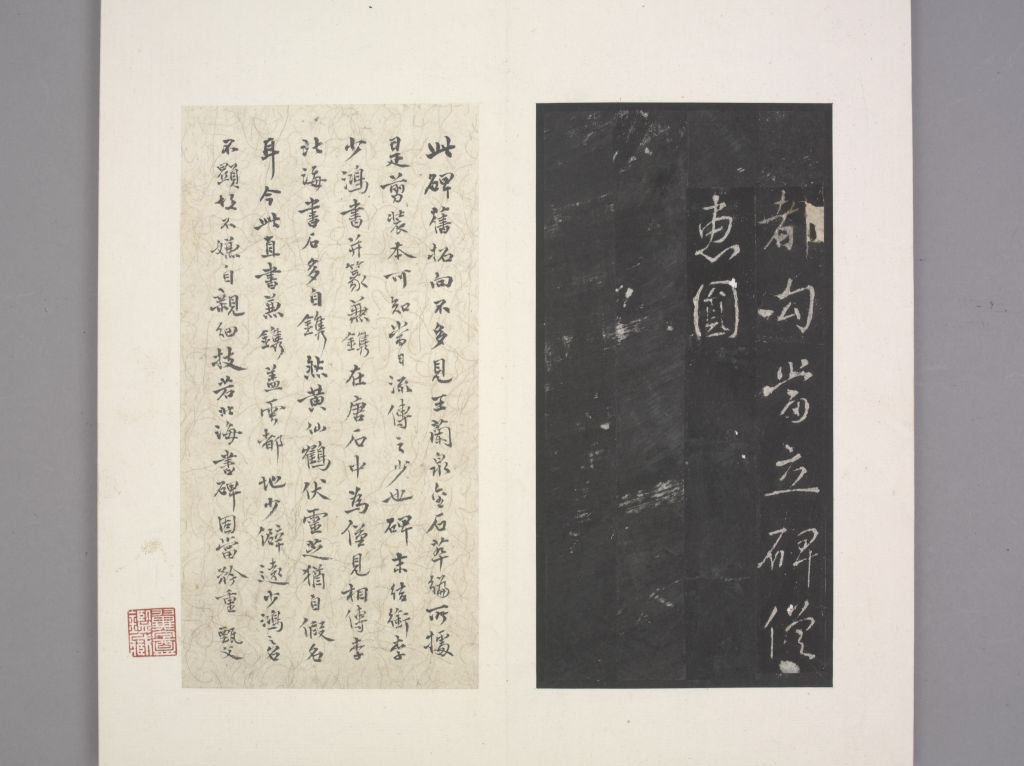 都勾當立碑僧
惠圓
此碑舊拓向不多見王蘭泉金石萃編所據
是剪裝本可知當日流傳之少也碑末結銜李
少鴻書并篆兼鐫在唐石中為僅見相傳李
北海書石多自鐫然黃仙鶴伏靈芝猶自假名
耳今此直書兼鐫蓋雩都地少僻遠少鴻之名
不顯故不嫌自親細技若北海書碑固當矜重 甄父